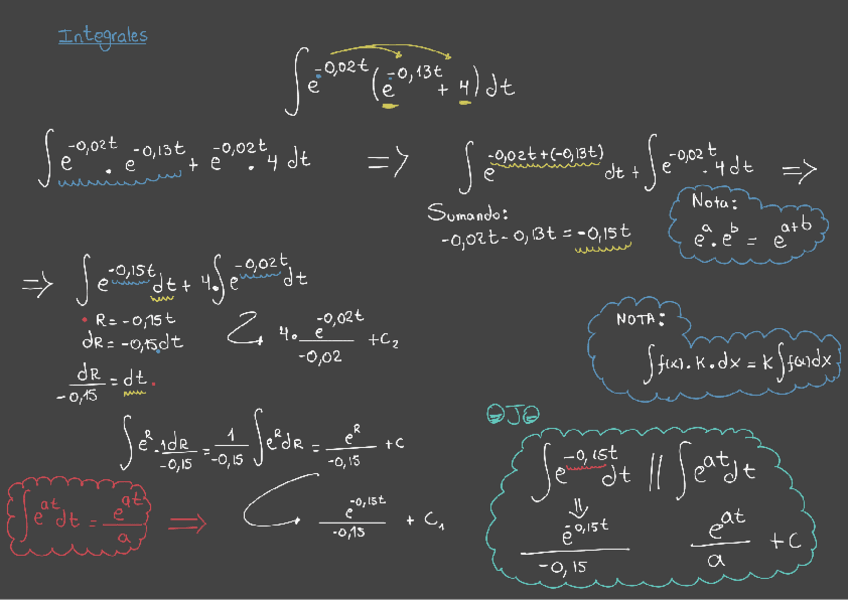 Integrales
∫e^-0,02t (e^-0,13t + 4) dt
∫e^-0,02t . e^-0,13t + e^-0,02t . 4 dt => ∫e^-0,02t+(-0,13t) dt + ∫e^-0,02t . 4 dt =>
Sumando:
-0,02t - 0,13t = -0,15t
Nota:
e^a . e^b = e^a+b
=> ∫e^-0,15t dt + 4.∫e^-0,02t dt
R = -0,15t
dR = -0,15dt
dR/-0,15 = dt
4. e^-0,02t/-0,02 + C₂
NOTA:
∫f(x). K . dx = K∫f(x)dx
∫e^R . 1dR/-0,15 = 1/-0,15 ∫e^R dR = e^R/-0,15 + C
∫e^at dt = e^at/a => e^-0,15t/-0,15 + C₁
OJO
∫e^-0,15t dt // ∫e^at dt
=>
e^-0,15t/-0,15 e^at/a + C